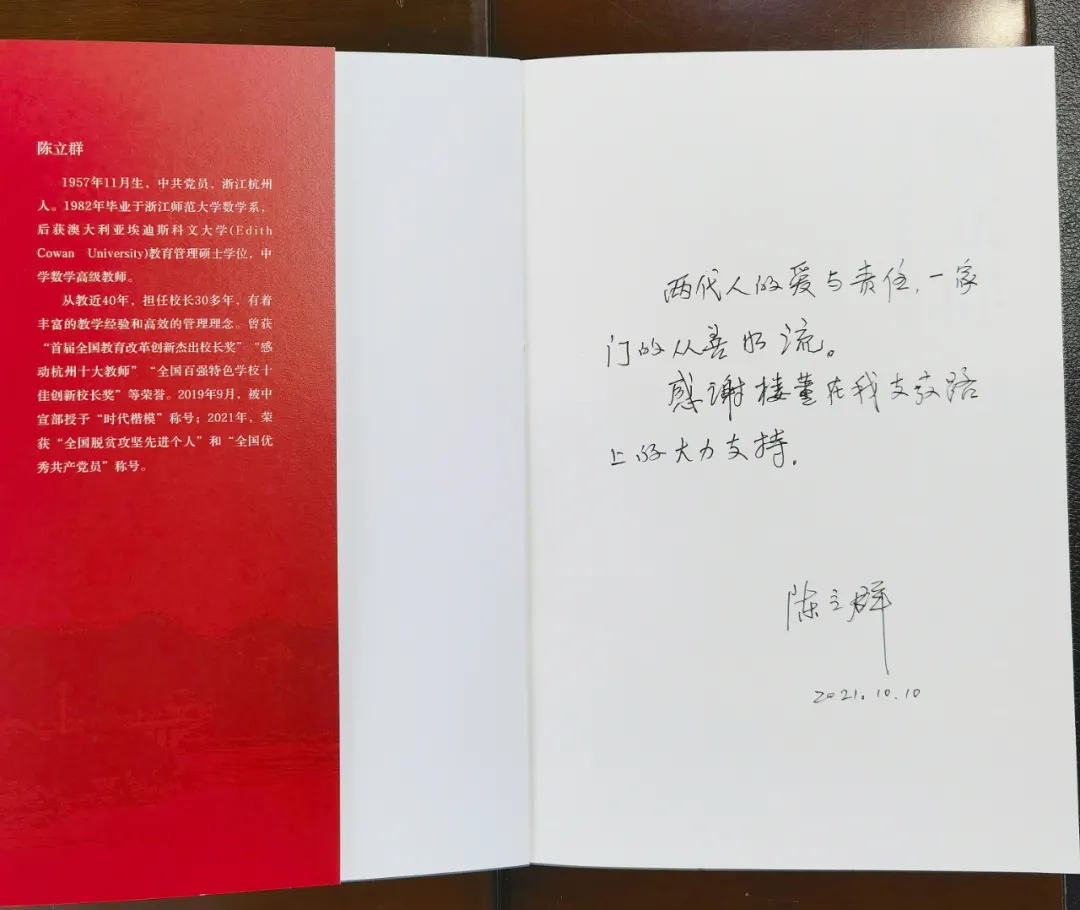 陈立群
1957年11月生，中共党员，浙江杭州
人。1982年毕业于浙江师范大学数学系，
后获澳大利亚埃迪斯科文大学(Edith
Cowan University)教育管理硕士学位，中
学数学高级教师。
从教近40年，担任校长30多年，有着
丰富的教学经验和高效的管理理念。曾获
“首届全国教育改革创新杰出校长奖”“感
动杭州十大教师”“全国百强特色学校十
佳创新校长奖”等荣誉。2019年9月，被中
宣部授予“时代楷模”称号；2021年，荣
获“全国脱贫攻坚先进个人”和“全国优
秀共产党员”称号。
两代人的爱与责任，一家
门的从善如流。
感谢楼董在我支教路
上的大力支持。
陈立群
2021.10.10